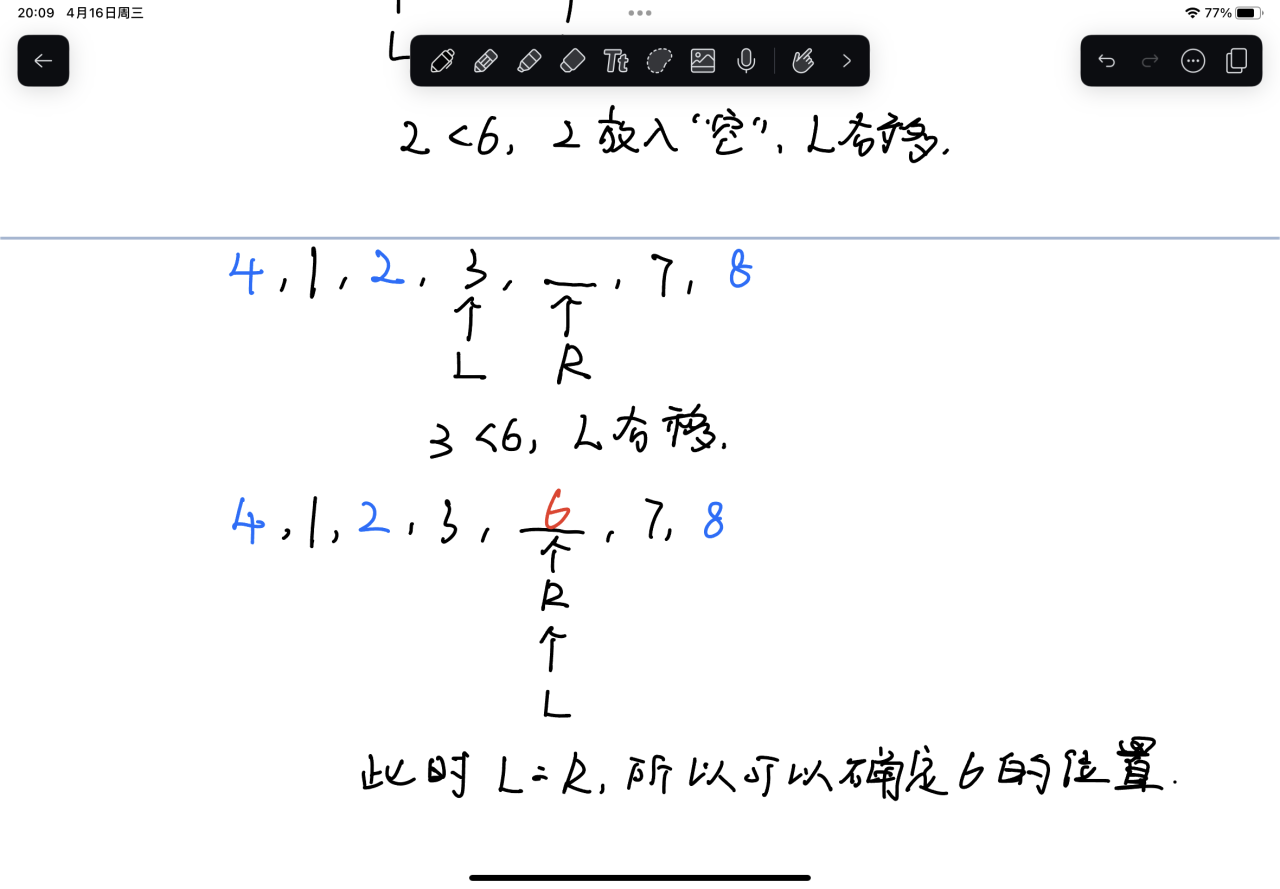 20:09 4月16日周三
77%
L
Tt
2 <6, 2 放入“空”, L右移.
4, 1, 2, 3, __, 7, 8
↑ ↑
L R
3 <6, L右移.
4, 1, 2, 3, 6, 7, 8
↑
R
↑
L
此时 L=R, 所以可以确定 6 的位置.